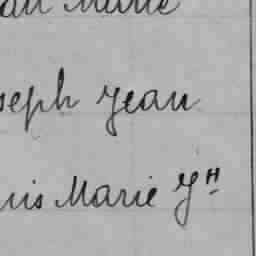 an Marie
seph Jean
uis Marie Yʰ